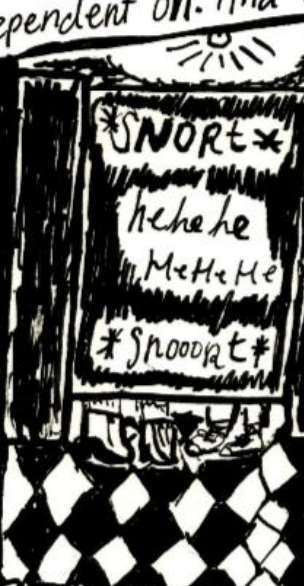 ependent on. And
*SNORt*
hehehe
HeHeHe
*SnoooRt*